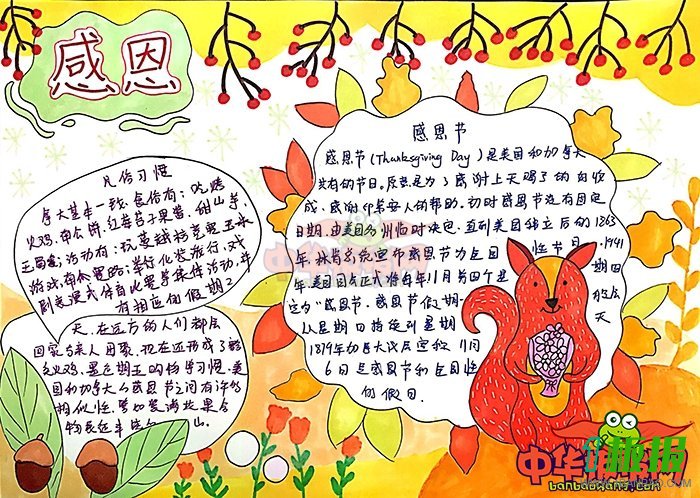 感恩
凡俗习惯
拿大基本一致，食俗有：吃烤
火鸡、南瓜饼、红莓苔子果酱、甜山芋、
玉蜀黍；活动有：玩蔓越桔竞赛、玉米
游戏、南瓜赛跑；举行化装游行、戏
剧表演或体育比赛等集体活动，并
有相应的假期2
天、在远方的人们都会
回家与亲人团聚。现在还形成了
免火鸡、黑色期五购物学习惯。美
国和加拿大的感恩节之间有许多
相似性，
感恩节
感恩节(Thanksgiving Day)是美国和加拿大
共有的节日。原意是为了感谢上天赐予的好收
成、感谢印第安人的帮助。初时感恩节没有固定
日期，由美国各州临时决定。直到美国独立后的1863
年，林肯总统宣布感恩节为全国性节日。1941
年，美国国会正式将每年11月第四个星期四
定为“感恩节”。感恩节假期一般会
从星期四持续到星期天
1879年加拿大议会宣称11月
6日是感恩节和全国性
的假日。
中华板报网
中华板报网
banbaowang.com
趣报